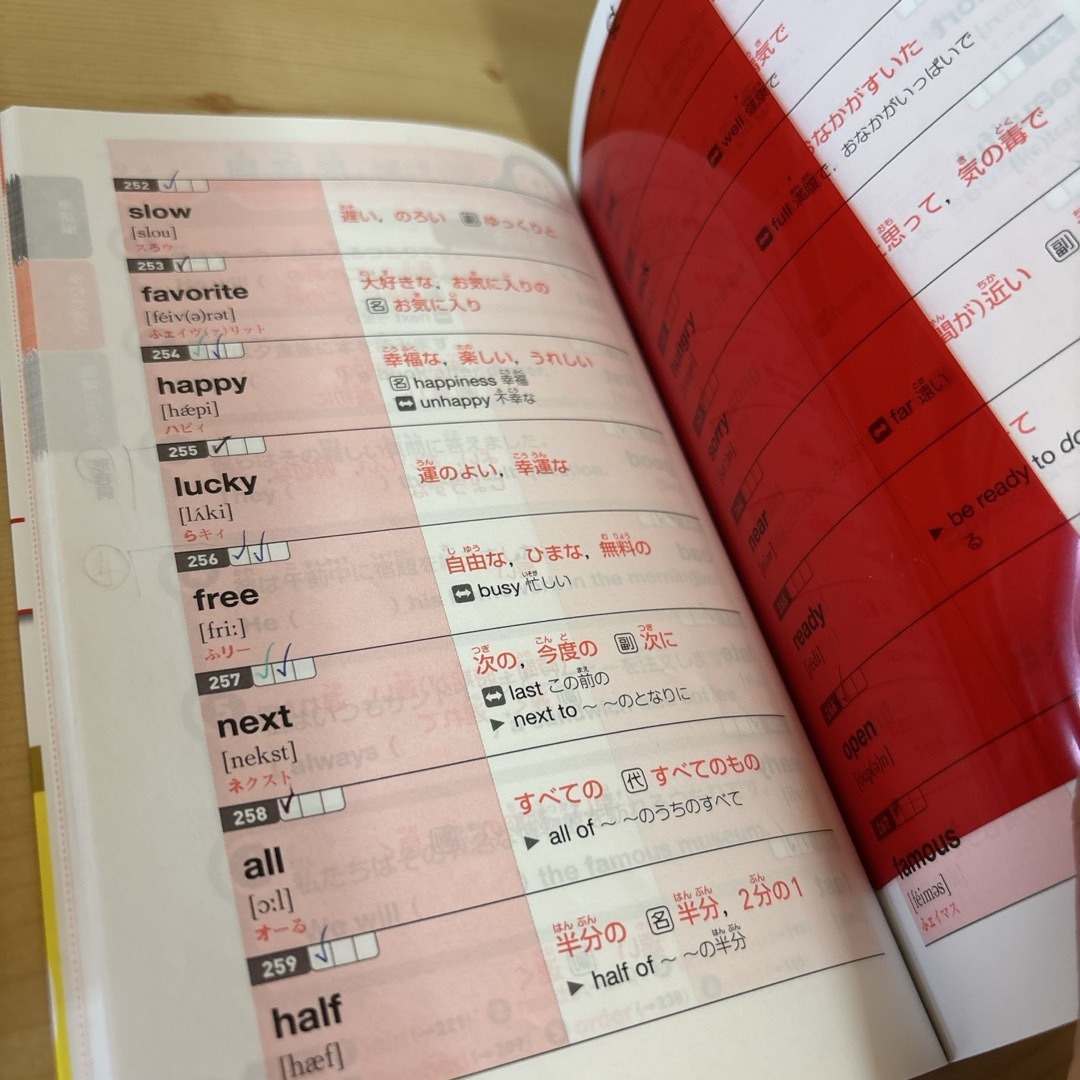 252
slow
[slou]
スろウ
遅い，のろい 副 ゆっくりと
253
favorite
[féiv(ə)rət]
ふェイヴ(ァ)リット
大好きな，お気に入りの
名 お気に入り
254
happy
[hǽpi]
ハピィ
幸福な，楽しい，うれしい
名 happiness 幸福
unhappy 不幸な
255
lucky
[lʌ́ki]
らキィ
運のよい，幸運な
256
free
[fri:]
ふリー
自由な，ひまな，無料の
busy 忙しい
257
next
[nekst]
ネクスト
次の，今度の 副 次に
last この前の
next to ～ ～のとなりに
258
all
[ɔ:l]
オーる
すべての 代 すべてのもの
all of ～ ～のうちのすべて
259
half
[hæf]
半分の 名 半分，2分の1
half of ～ ～の半分
気で
well
なかがすいた
full 満腹で，おなかがいっぱいで
hungry
思って，気の毒で
sorry
間が)近い 副
far 遠い
near
て
be ready to do
る
ready
open
famous
[féiməs]
ふェイマス